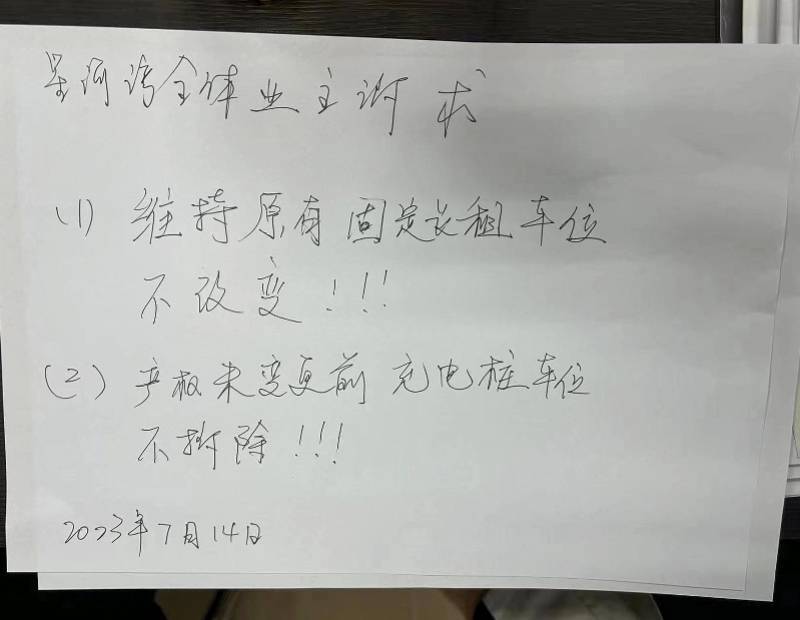 星河湾全体业主诉求
(1) 维持原有固定长租车位
不改变!!!
(2) 产权未变更前充电桩车位
不拆除!!!
2023年7月14日